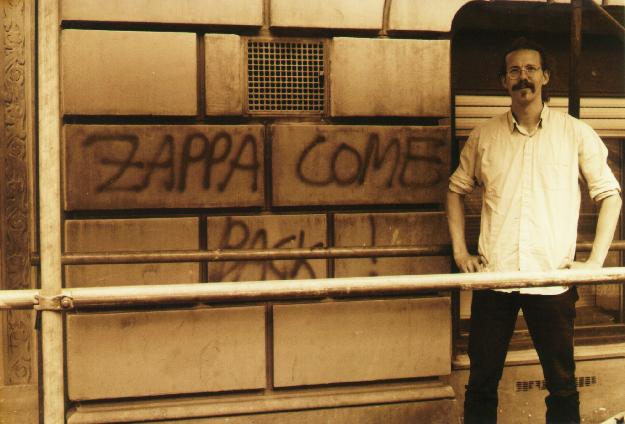 ZAPPA COME
BACK !